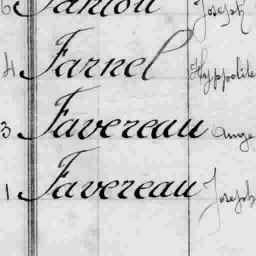 6 Joseph
4 Farnel Hyppolite
3 Favereau Ange
1 Favereau Joseph